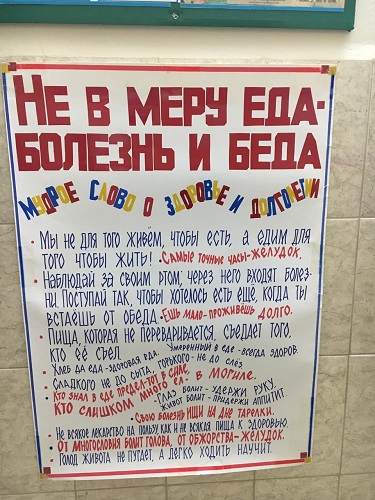 НЕ В МЕРУ ЕДА-
БОЛЕЗНЬ И БЕДА
МУДРОЕ СЛОВО О ЗДОРОВЬЕ И ДОЛГОЛЕТИИ
• МЫ НЕ ДЛЯ ТОГО ЖИВЁМ, ЧТОБЫ ЕСТЬ, А ЕДИМ ДЛЯ
ТОГО ЧТОБЫ ЖИТЬ! • САМЫЕ ТОЧНЫЕ ЧАСЫ-ЖЕЛУДОК.
• НАБЛЮДАЙ ЗА СВОИМ РТОМ, ЧЕРЕЗ НЕГО ВХОДЯТ БОЛЕЗ-
НИ. ПОСТУПАЙ ТАК, ЧТОБЫ ХОТЕЛОСЬ ЕСТЬ ЕЩЕ, КОГДА ТЫ
ВСТАЁШЬ ОТ ОБЕДА. • ЕШЬ МАЛО-ПРОЖИВЁШЬ ДОЛГО.
• ПИЩА, КОТОРАЯ НЕ ПЕРЕВАРИВАЕТСЯ, СЪЕДАЕТ ТОГО,
КТО ЕЁ СЪЕЛ. УМЕРЕННЫЙ В ЕДЕ - ВСЕГДА ЗДОРОВ.
• ХЛЕБ ДА ЕДА-ЗДОРОВАЯ ЕДА.
• СЛАДКОГО НЕ ДО СЫТА, ГОРЬКОГО-НЕ ДО СЛЁЗ
• КТО ЗНАЛ В ЕДЕ ПРЕДЕЛ-ТОТ В СИЛЕ,
КТО СЛИШКОМ МНОГО ЕЛ- В МОГИЛЕ.
• ГЛАЗ БОЛИТ-УДЕРЖИ РУКУ,
ЖИВОТ БОЛИТ-ПРИДЕРЖИ АППИТИТ.
• СВОЮ БОЛЕЗНЬ ИЩИ НА ДНЕ ТАРЕЛКИ.
• НЕ ВСЯКОЕ ЛЕКАРСТВО НА ПОЛЬЗУ, КАК И НЕ ВСЯКАЯ ПИЩА К ЗДОРОВЬЮ.
• ОТ МНОГОСЛОВИЯ БОЛИТ ГОЛОВА, ОТ ОБЖОРСТВА-ЖЕЛУДОК.
• ГОЛОД ЖИВОТА НЕ ПУГАЕТ, А ЛЕГКО ХОДИТЬ НАУЧИТ.